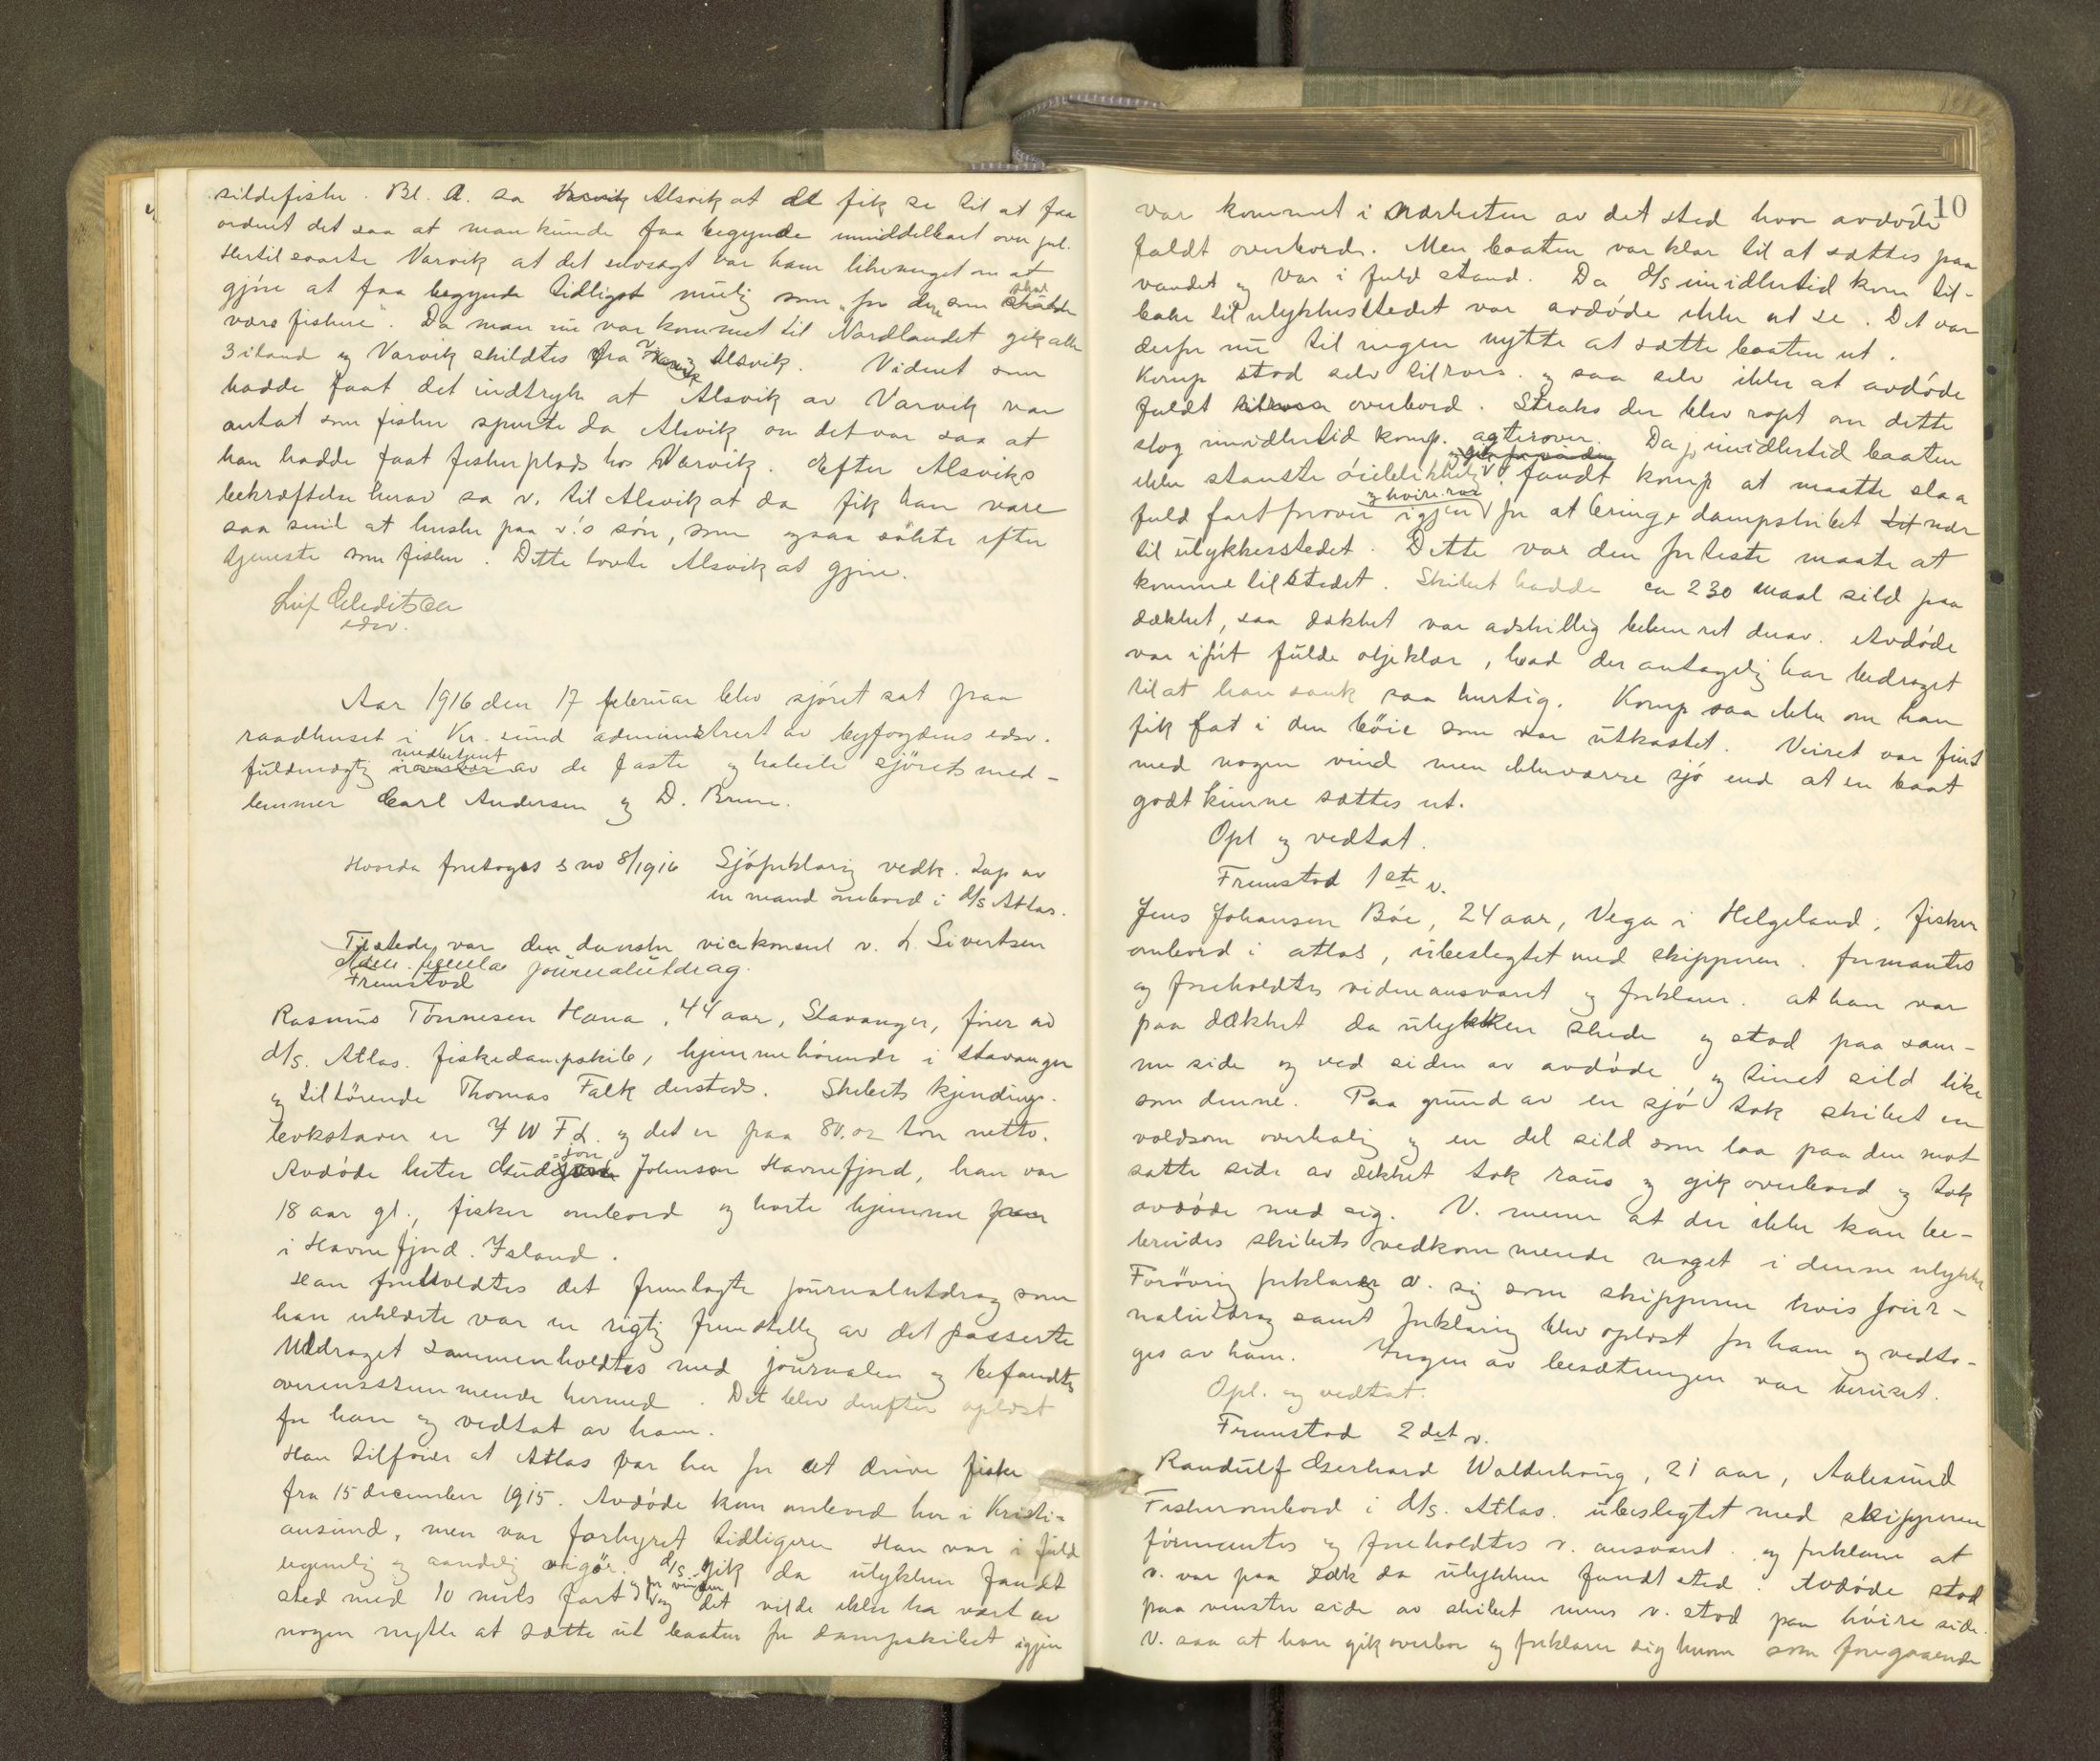 sildefiske. Bl. a. sa Varvik Alsvik at de fik se til at faa
ordnet det saa at man kunde faa begynde umiddelbart over jul.
Hertil svarte Varvik at det selvsagt var ham likemeget om at
gjöre at faa begynde tidligst mulig som "for dere som skal skulde
være fiskere". Da man nu var kommet til Nordlandet gik alle
3 iland og Varvik skildtes fra V. og Alsvik. Vidnet som
hadde faat det indtryk at Alsvik av Varvik var
antat som fisker spurte da Alsvik om det var saa at
han hadde faat fiskerplads hos Varvik. Efter Alsviks
bekræftelse herav sa v. til Alsvik at da fik han være
saa snil at huske paa v.'s sön, som ogsaa sökte efter
tjeneste som fisker. Dette lovte Alsvik at gjöre.
Leif Gleditsch
edsv.
Aar 1916 den 17 februar blev sjöret sat paa
raadhuset i Kr.sund administrert av byfogdens edsv.
fuldmægtig medbetjent av de faste og habile sjörets med-
lemmer Carl Andersen og D. Brun.
Hvorda foretoges s no 8/1916 Sjöforklaring vedk. Tap av
en mand ombord i d/s Atlas.
Tilstede var den danske vicekonsul v. L. Sivertsen
journalutdrag.
Fremstod
Rasmus Tönnesen Hana, 44 aar, Stavanger, förer av
d/s. Atlas. fiskedampskib, hjemmehörende i Stavanger
og tilhörende Thomas Falk dersteds. Skibets kjendings-
bokstaver er M W F d. og det er paa 80.02 ton netto.
Avdöde heter Gudjon Johnson Havnefjord, han var
18 aar gl., fisker ombord og hörte hjemme
i Havnefjord. Island.
Han foreholdtes det fremlagte journalutdrag som
han erklærte var en rigtig fremstilling av det passerte
Utdraget sammenholdtes med journalen og befandtes
overensstemmende hermed. Det blev derefter oplæst
for ham og vedtat av ham.
Han tilföier at Atlas var her for at drive fiske
fra 15 december 1915. Avdöde kom ombord her i Kristi-
ansund, men var forhyret tidligere. Han var i fuld
legemlig og aandelig vigör. d/s. gik da ulykken fandt
sted med 10 mils fart og for vinden og det vilde ikke ha vært av
nogen nytte at sætte ut baaten för dampskibet igjen
10
var kommet i nærheten av det sted hvor avdöde
faldt overbord. Men baaten var klar til at sættes paa
vandet og var i fuld stand. Da d/s imidlertid kom til-
bake til ulykkesstedet var avdöde ikke at se. Det var
derfor nu til ingen nytte at sætte baaten ut.
Komp stod selv tilrors og saa selv ikke at avdöde
faldt tilrors overbord. Straks der blev ropt om dette
slog imidlertid komp. agterover. Da imidlertid baaten
ikke stanste öieblikkelig fandt komp at maatte slaa
fuld fart forover igjen og höire ror for at bringe dampskibet nær
til ulykkesstedet. Dette var den forteste maate at
komme til stedet. Skibet hadde ca 230 maal sild paa
dækket, saa dækket var adskillig belemret derav. Avdöde
var iført fulde oljeklær, hvad der antagelig har bidraget
til at han sank saa hurtig. Komp saa ikke om han
fik fat i den böie som var utkastet. Veiret var fint
med nogen vind men ikke værre sjö end at en baat
godt kunne sættes ut.
Opl og vedtat.
Fremstod 1ste v.
Jens Johansen Böe, 24 aar, Vega i Helgeland, fisker
ombord i atlas, ubeslegtet med skipperen. formantes
og foreholdtes vidneansvaret og forklarer: at han var
paa dækket da ulykken skede og stod paa sam-
me side og ved siden av avdöde og sild like
som denne. Paa grund av en sjö tok skibet en
voldsom overhaling og en del sild som laa paa den mot
satte side av dekket tok raus og gik overbord og tok
avdöde med sig. V. mener at der ikke kan be-
breides skibets vedkommende noget i denne ulykke
Forövrig forklarer v. sig som skipperen hvis jour-
nalutdrag samt forklaring blev oplæst for ham og vedta-
ges av ham. Ingen av besætningen var beruset.
Opl. og vedtat.
Fremstod 2det v.
Randulf Gerhard Walderhaug, 21 aar, Aalesund
Fisker ombord i d/s. Atlas. ubeslegtet med skipperen
formantes og foreholdtes v. ansvaret. og forklarer at
v. var paa dæk da ulykken fandt sted. Avdöde stod
paa venstre side av skibet mens v. stod paa höire side.
V. saa at han gik overbor og forklarer sig herom som foregaaende